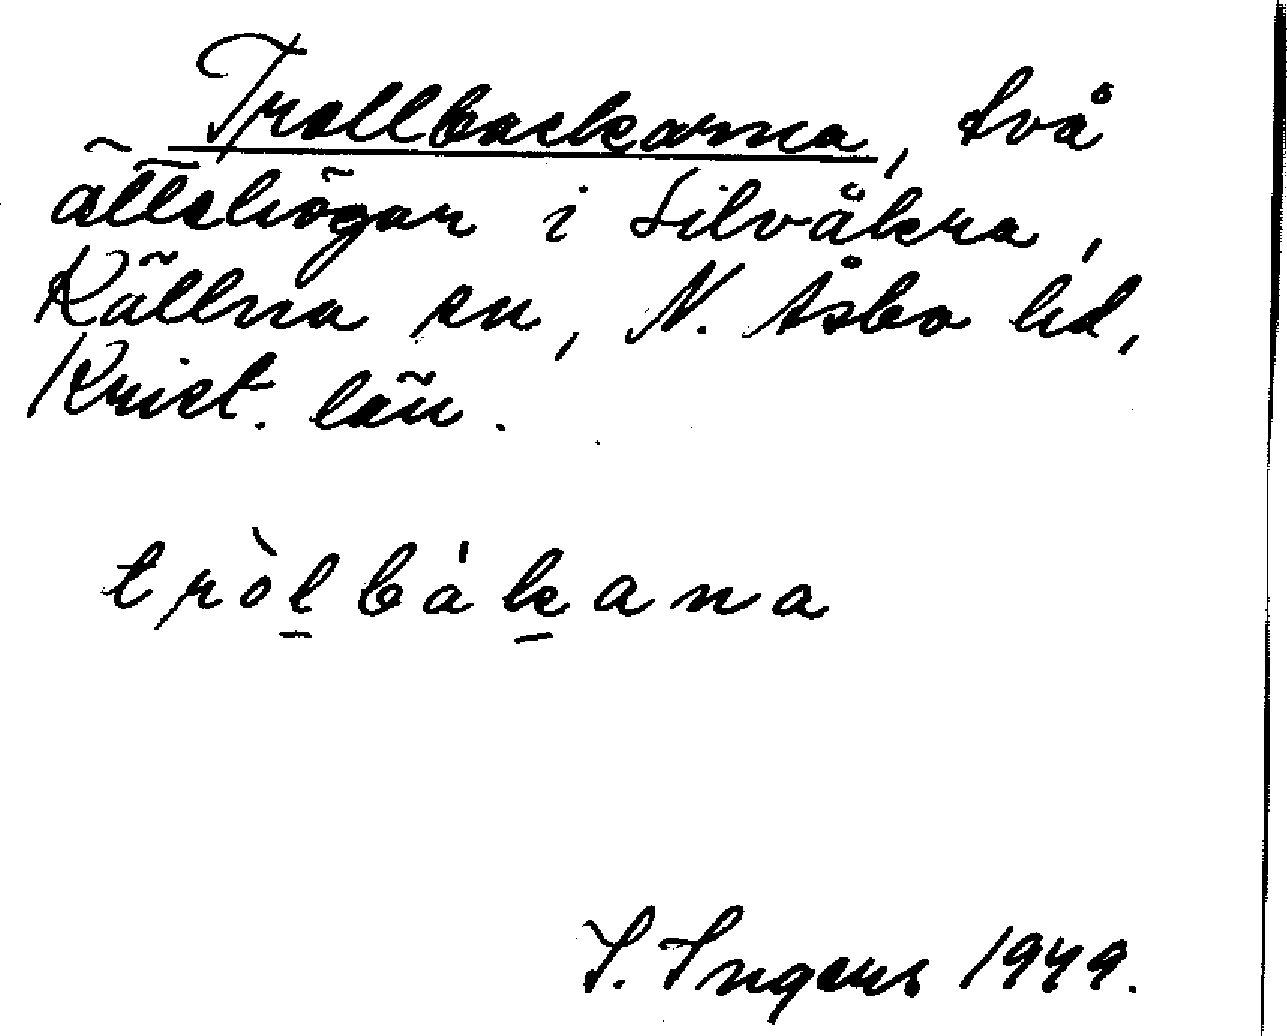 Trollbackarna, två
ättehögar i Silvåkra,
Källna sn, N. Åsbo hd,
Krist. län.
tròl̲bák̲ana
I. Ingers 1949.